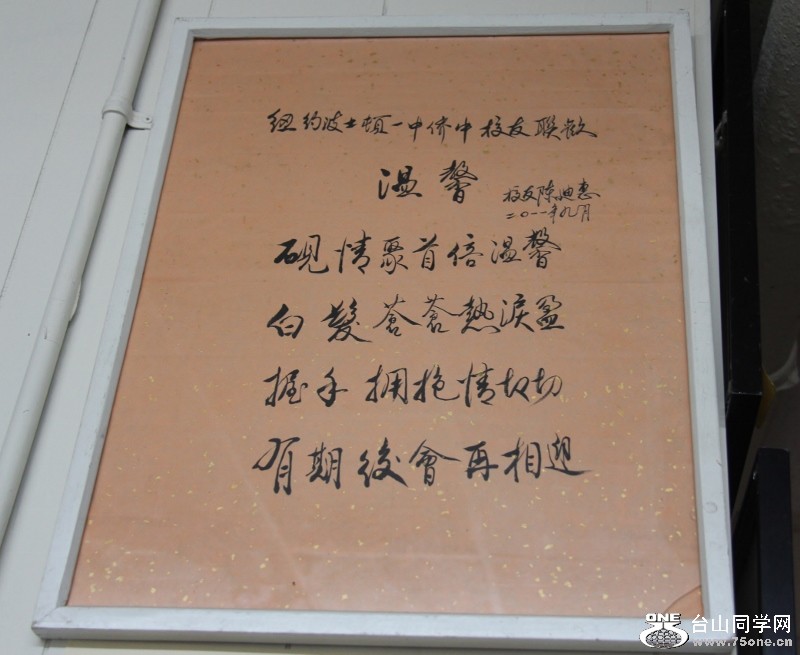 纽约波士顿一中侨中校友聯歡
温馨
校友陈迪惠
二〇一一年九月
砚情聚首倍温馨
白髮蒼蒼熱淚盈
握手拥抱情切切
有期後會再相迎
ONE 台山同学网
www.75one.cn